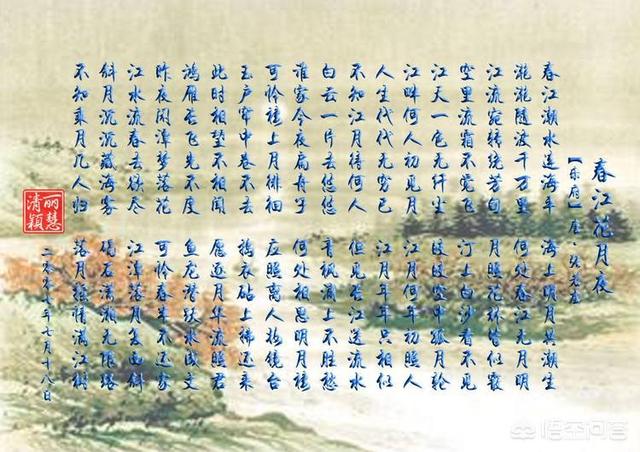 春江花月夜
【乐府】唐·张若虚
春江潮水连海平 海上明月共潮生
滟滟随波千万里 何处春江无月明
江流宛转绕芳甸 月照花林皆似霰
空里流霜不觉飞 汀上白沙看不见
江天一色无纤尘 皎皎空中孤月轮
江畔何人初见月 江月何年初照人
人生代代无穷已 江月年年只相似
不知江月待何人 但见长江送流水
白云一片去悠悠 青枫浦上不胜愁
谁家今夜扁舟子 何处相思明月楼
可怜楼上月徘徊 应照离人妆镜台
玉户帘中卷不去 捣衣砧上拂还来
此时相望不相闻 愿逐月华流照君
鸿雁长飞光不度 鱼龙潜跃水成文
昨夜闲潭梦落花 可怜春半不还家
江水流春去欲尽 江潭落月复西斜
斜月沉沉藏海雾 碣石潇湘无限路
不知乘月几人归 落月摇情满江树
丽慧
清颖
二〇〇七年七月十八日
悟空问答